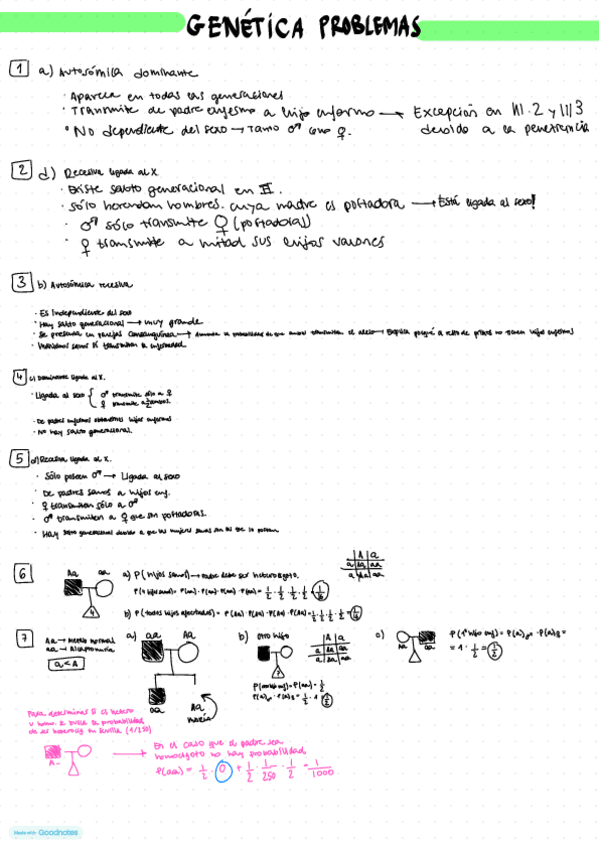 GENÉTICA PROBLEMAS
1 a) Autosómica dominante
· Aparece en todas las generaciones
· Transmite de padre enfermo a hijo enfermo → Excepción en III.2 y III3 debido a la penetrancia
· No dependiente del sexo → Tanto ♂ como ♀.
2 d) Recesiva ligada al X
· Existe salto generacional en II.
· Sólo heredan hombres cuya madre es portadora → Está ligada al sexo!
· ♂ sólo transmite ♀ (portadora)
· ♀ transmite a mitad sus hijos varones
3 b) Autosómica recesiva
· Es independiente del sexo
· Hay salto generacional → muy grande
· Se presenta en parejas consanguíneas →
· Individuos sanos sí transmiten la enfermedad
4 c) Dominante ligada al X.
· Ligada al sexo { ♂ transmite sólo a ♀
♀ transmite a ambos.
· De padres enfermos obtenemos hijos enfermos
· No hay salto generacional.
5 d) Recesiva ligada al X.
· Sólo poseen ♂ → Ligada al sexo
· De padres sanos a hijos enf.
· ♀ transmiten sólo a ♂
· ♂ transmiten a ♀ que son portadoras.
· Hay salto generacional debido a que las mujeres sanas son las que lo portan
6 Aa aa a) P(hijos sanos) → Padre debe ser heterocigoto.
4
A a
a Aa aa
a Aa aa
b) P(todos hijos afectados) = P(Aa) · P(Aa) · P(Aa) · P(Aa) =
7 Aa → Medio normal
aa → Alcaptonuria
a < A
a) aa Aa
aa Aa
María
b) otro hijo
?
A a
a Aa aa
a Aa aa
c) Aa aa
?
P(1º hijo enf) =
= 1 · 1/2 = 1/2
Para determinar si es hetero
u homo
de ser heterocig en Sevilla (1/250)
A-
→ En el caso que el padre sea
homocigoto no hay probabilidad
P(aa) = 1/2 · 0 + 1/2 · 1/250 · 1/2 = 1/1000
Made with Goodnotes